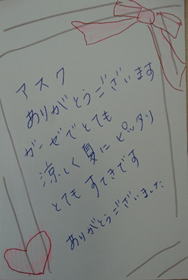 マスク
ありがとうございます
がーぜでとても
涼しく夏にピッタリ
とても すてきです
ありがとうございました